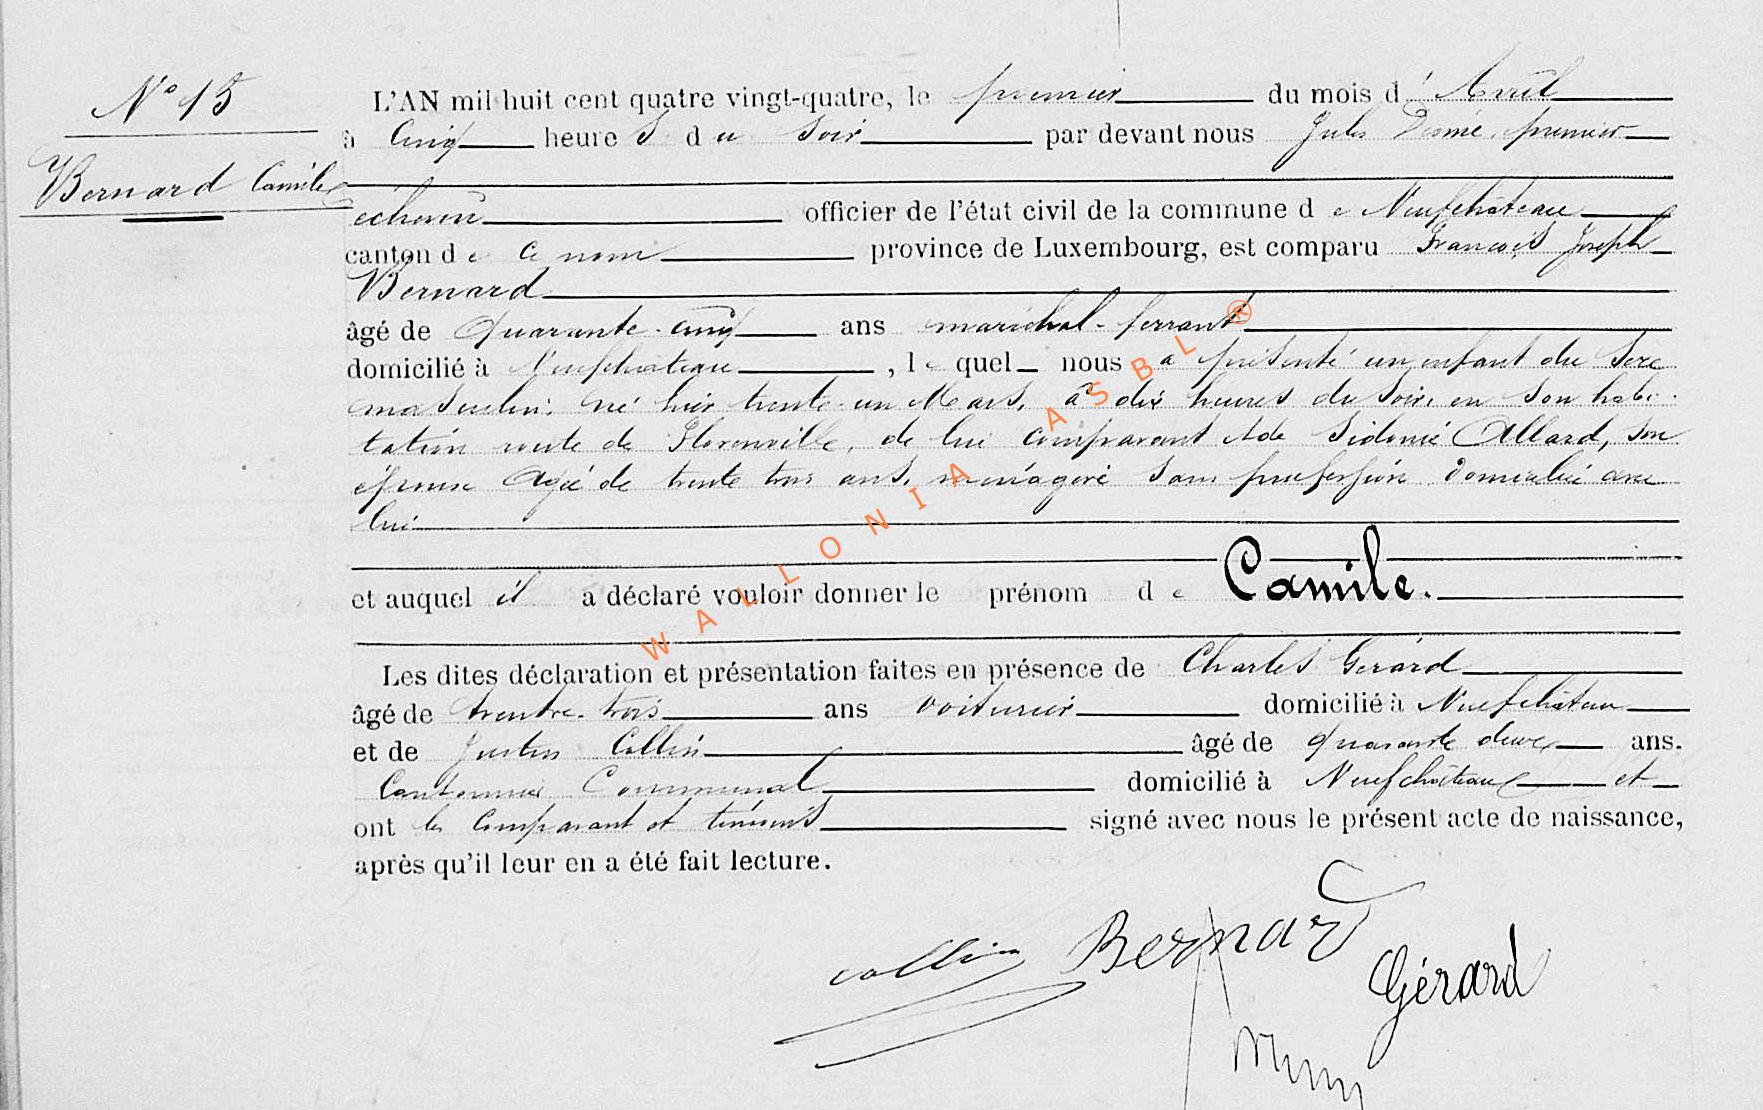 N° 15
Bernard Camile
L'AN mil huit cent quatre vingt-quatre, le premier du mois d'Avril
à Cinq heures du Soir par devant nous Jules premier
echevin officier de l'état civil de la commune de Neufchateau
canton de ce nom province de Luxembourg, est comparu Francois Joseph
Bernard
âgé de Quarante-cinq ans maréchal-ferrant
domicilié à Neufchateau, lequel nous a présenté un enfant du Sexe
masculin, né hier trente-un Mars, à dix heures du Soir, en Son habi-
tation route de Florenville, de lui comparant et de Sidonie Allard, Son
épouse agée de trente trois ans, ménagère Sans profession domiciliée avec
lui
et auquel il a déclaré vouloir donner le prénom de Camile.
Les dites déclaration et présentation faites en présence de Charles Gerard
âgé de trentre-trois ans voiturier domicilié à Neufchateau
et de Justin Collin âgé de quarante deux ans.
Cantonnier Communal domicilié à Neufchâteau et
ont les comparant et témoins signé avec nous le présent acte de naissance,
après qu'il leur en a été fait lecture.
collin Bernard Gérard
WALLONIA ASBL ®